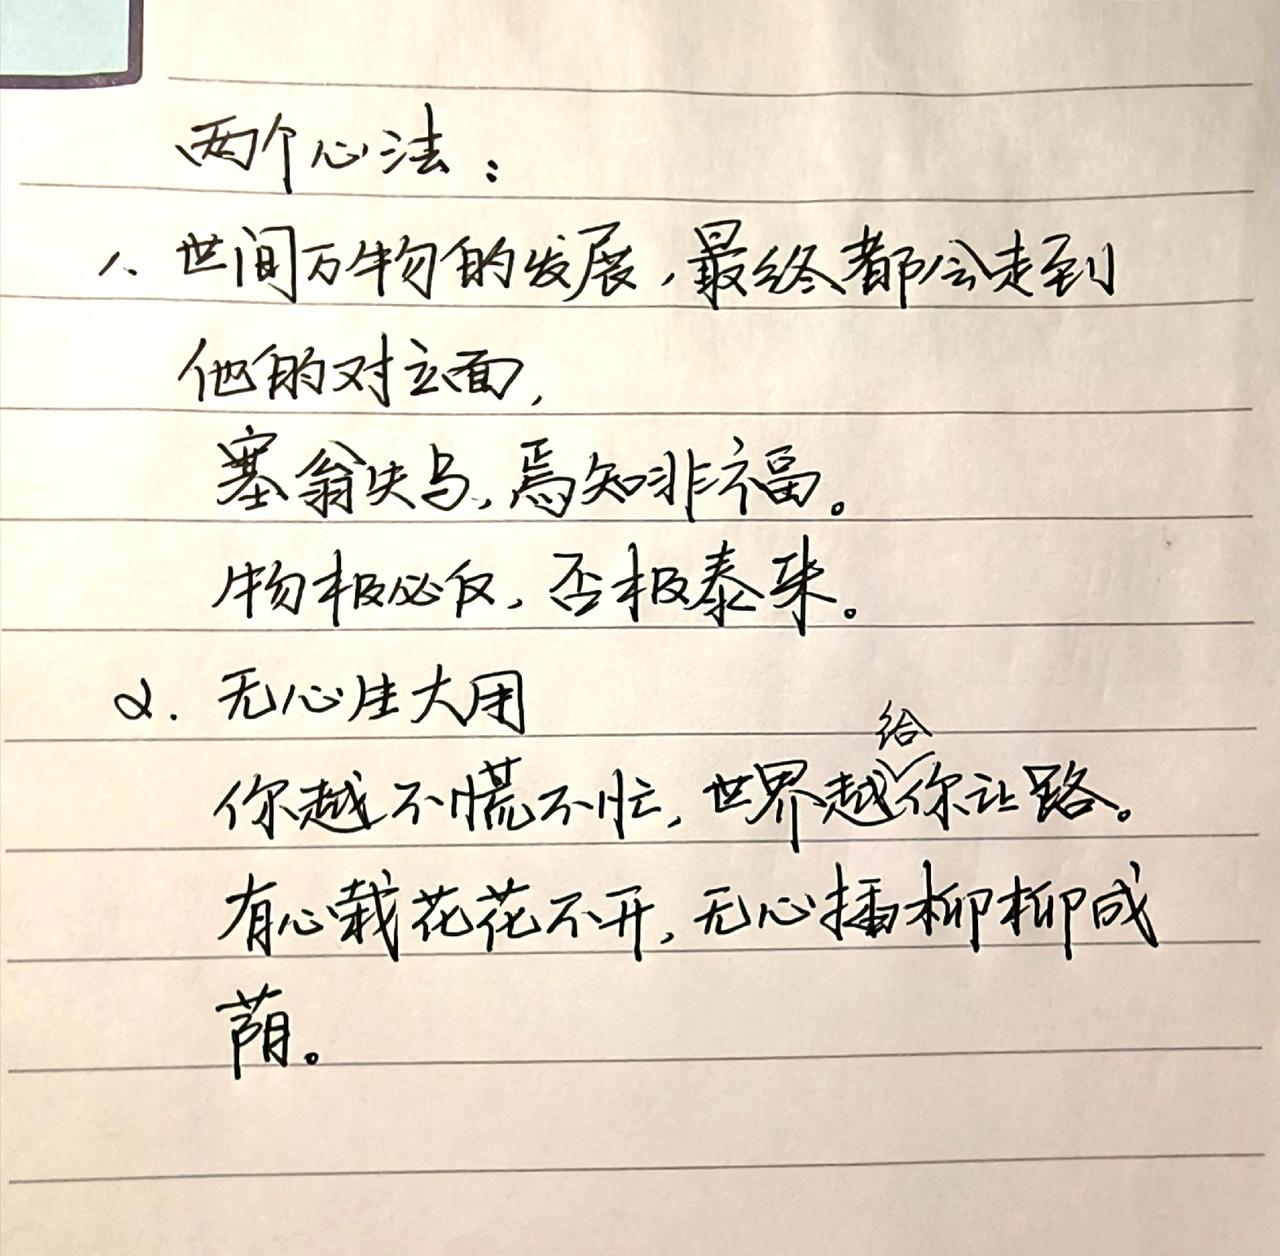 两个心法：
1、世间万物的发展，最终都会走到
他的对立面，
塞翁失马，焉知非福。
物极必反，否极泰来。
2. 无心生大用
你越不慌不忙，世界越给你让路。
有心栽花花不开，无心插柳柳成
荫。